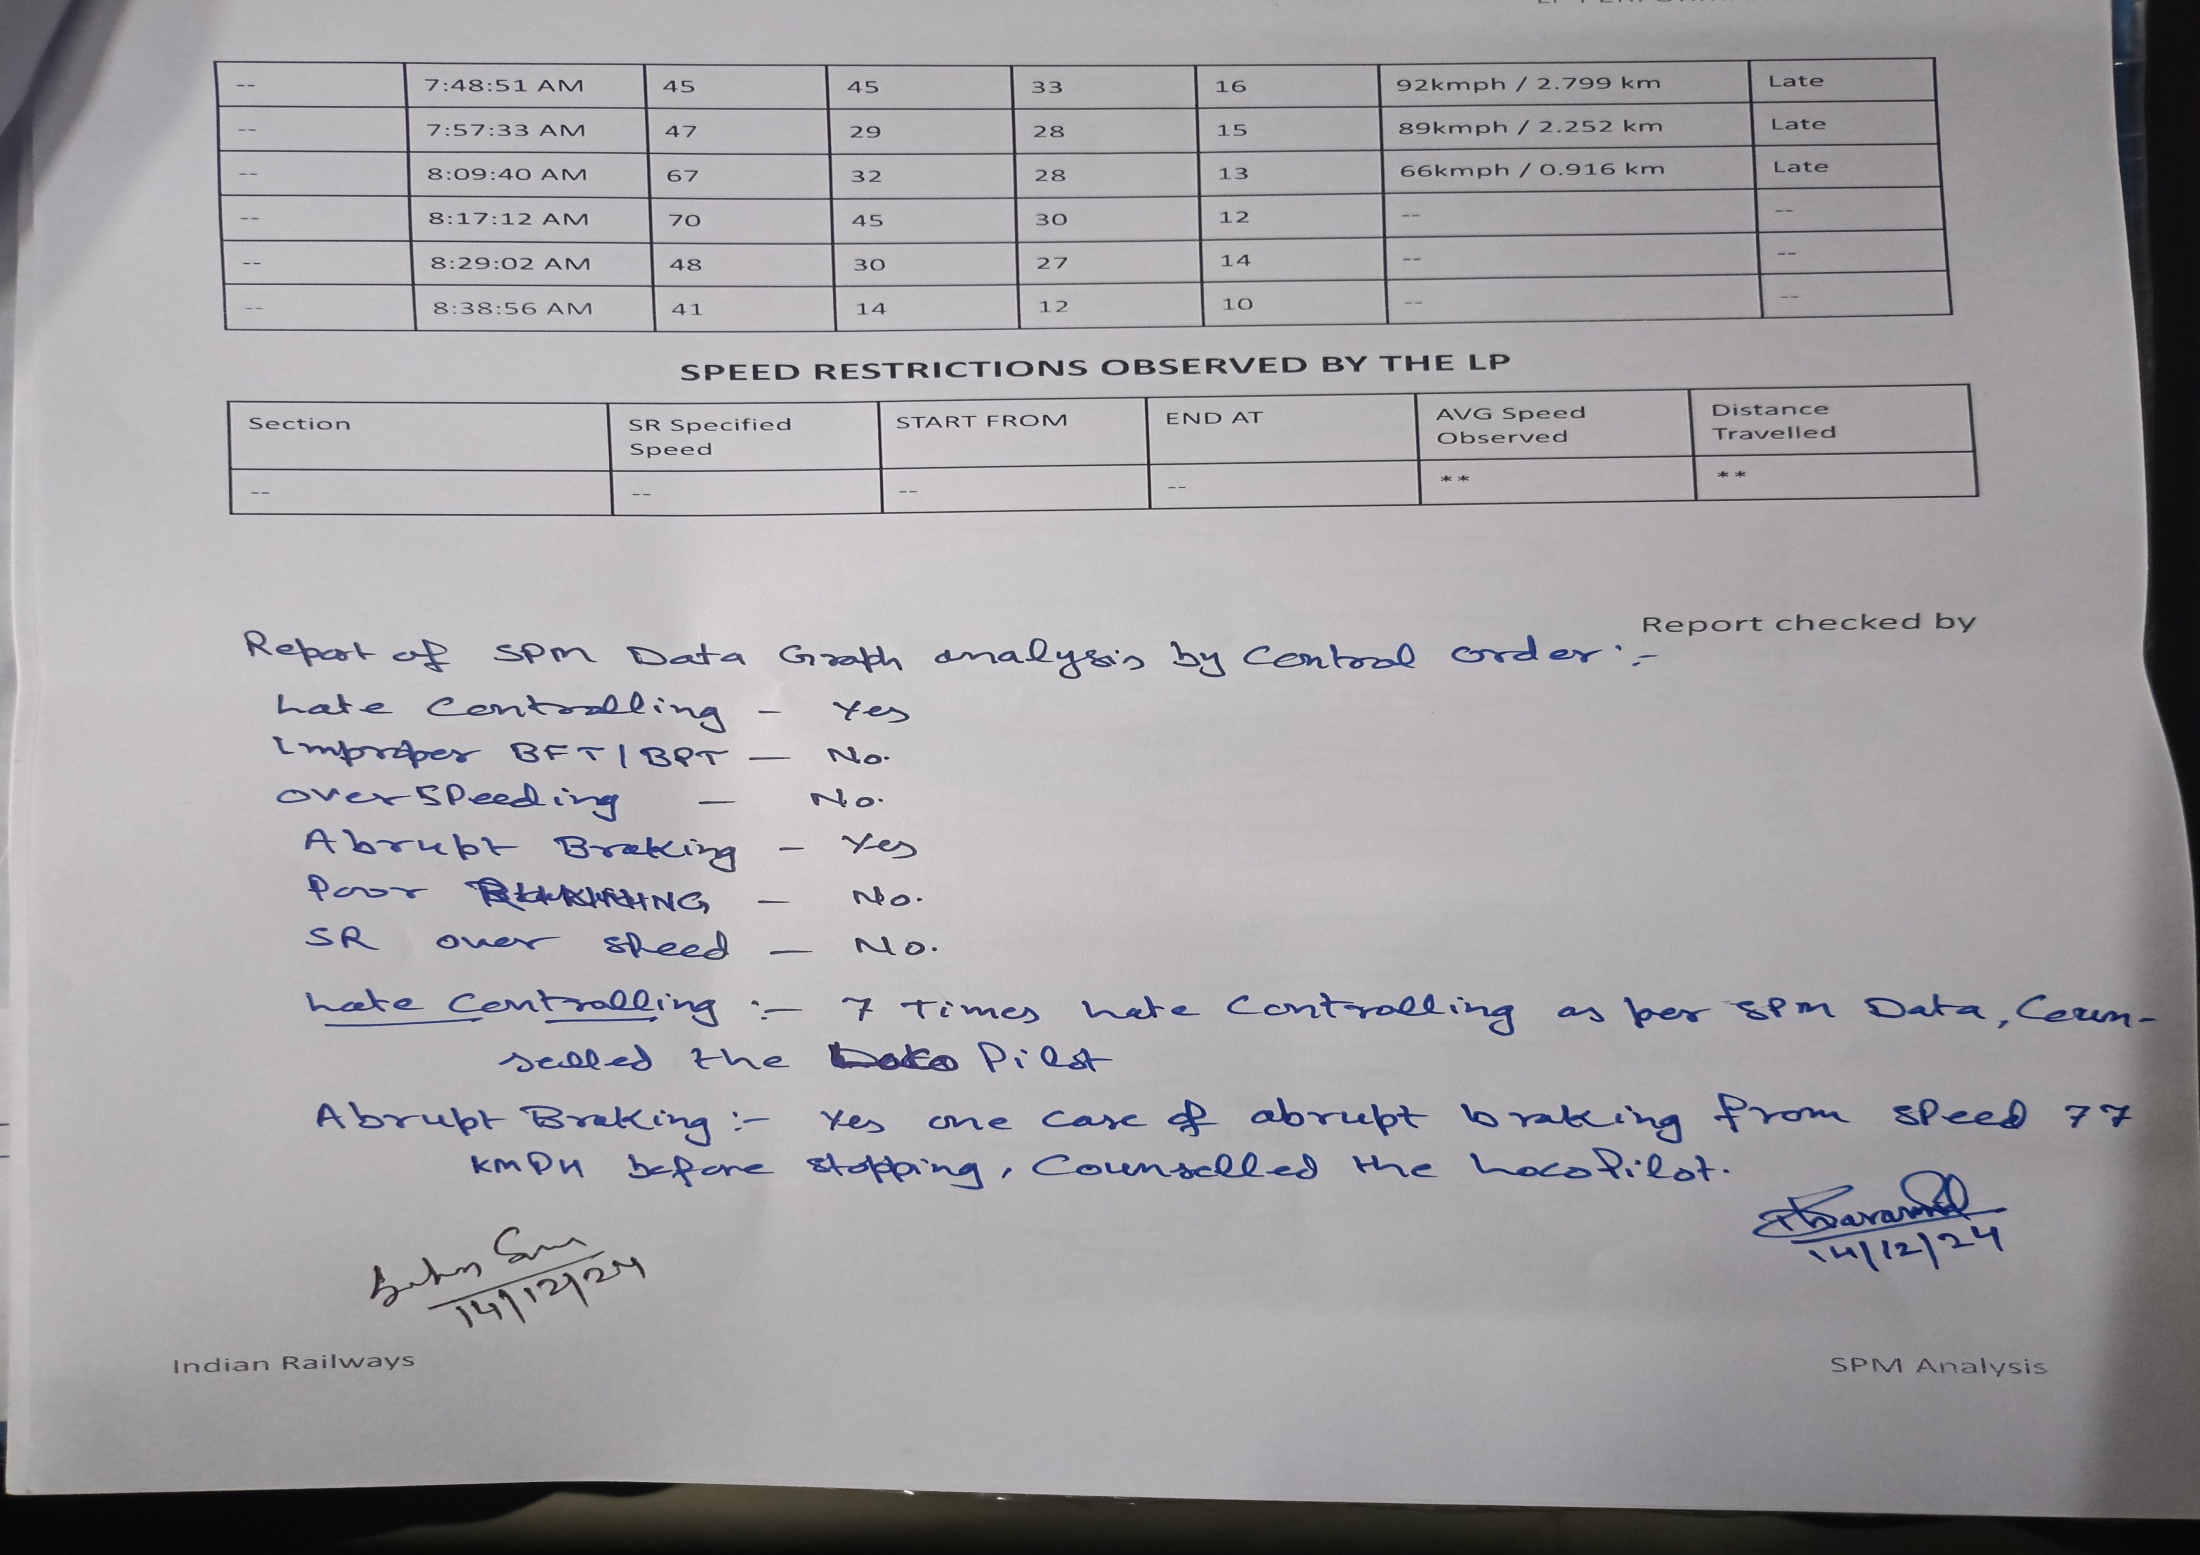 -- 7:48:51 AM 45 45 33 16 92kmph / 2.799 km Late
-- 7:57:33 AM 47 29 28 15 89kmph / 2.252 km Late
-- 8:09:40 AM 67 32 28 13 66kmph / 0.916 km Late
-- 8:17:12 AM 70 45 30 12 -- --
-- 8:29:02 AM 48 30 27 14 -- --
-- 8:38:56 AM 41 14 12 10 -- --
SPEED RESTRICTIONS OBSERVED BY THE LP
Section SR Specified Speed START FROM END AT AVG Speed Observed Distance Travelled
-- -- -- -- ** **
Report checked by
Report of SPM Data Graph analysis by Control order :-
Late Controlling - Yes
Improper BFT/BPT - No.
Over Speeding - No.
Abrupt Braking - Yes
Poor - No.
SR over speed - No.
Late Controlling :- 7 Times Late Controlling as per SPM Data, Coun-
selled the Loko Pilot
Abrupt Braking :- Yes one case of abrupt braking from speed 77
KMPH before stopping, Counselled the Loco Pilot.
14/12/24
14/12/24
Indian Railways
SPM Analysis